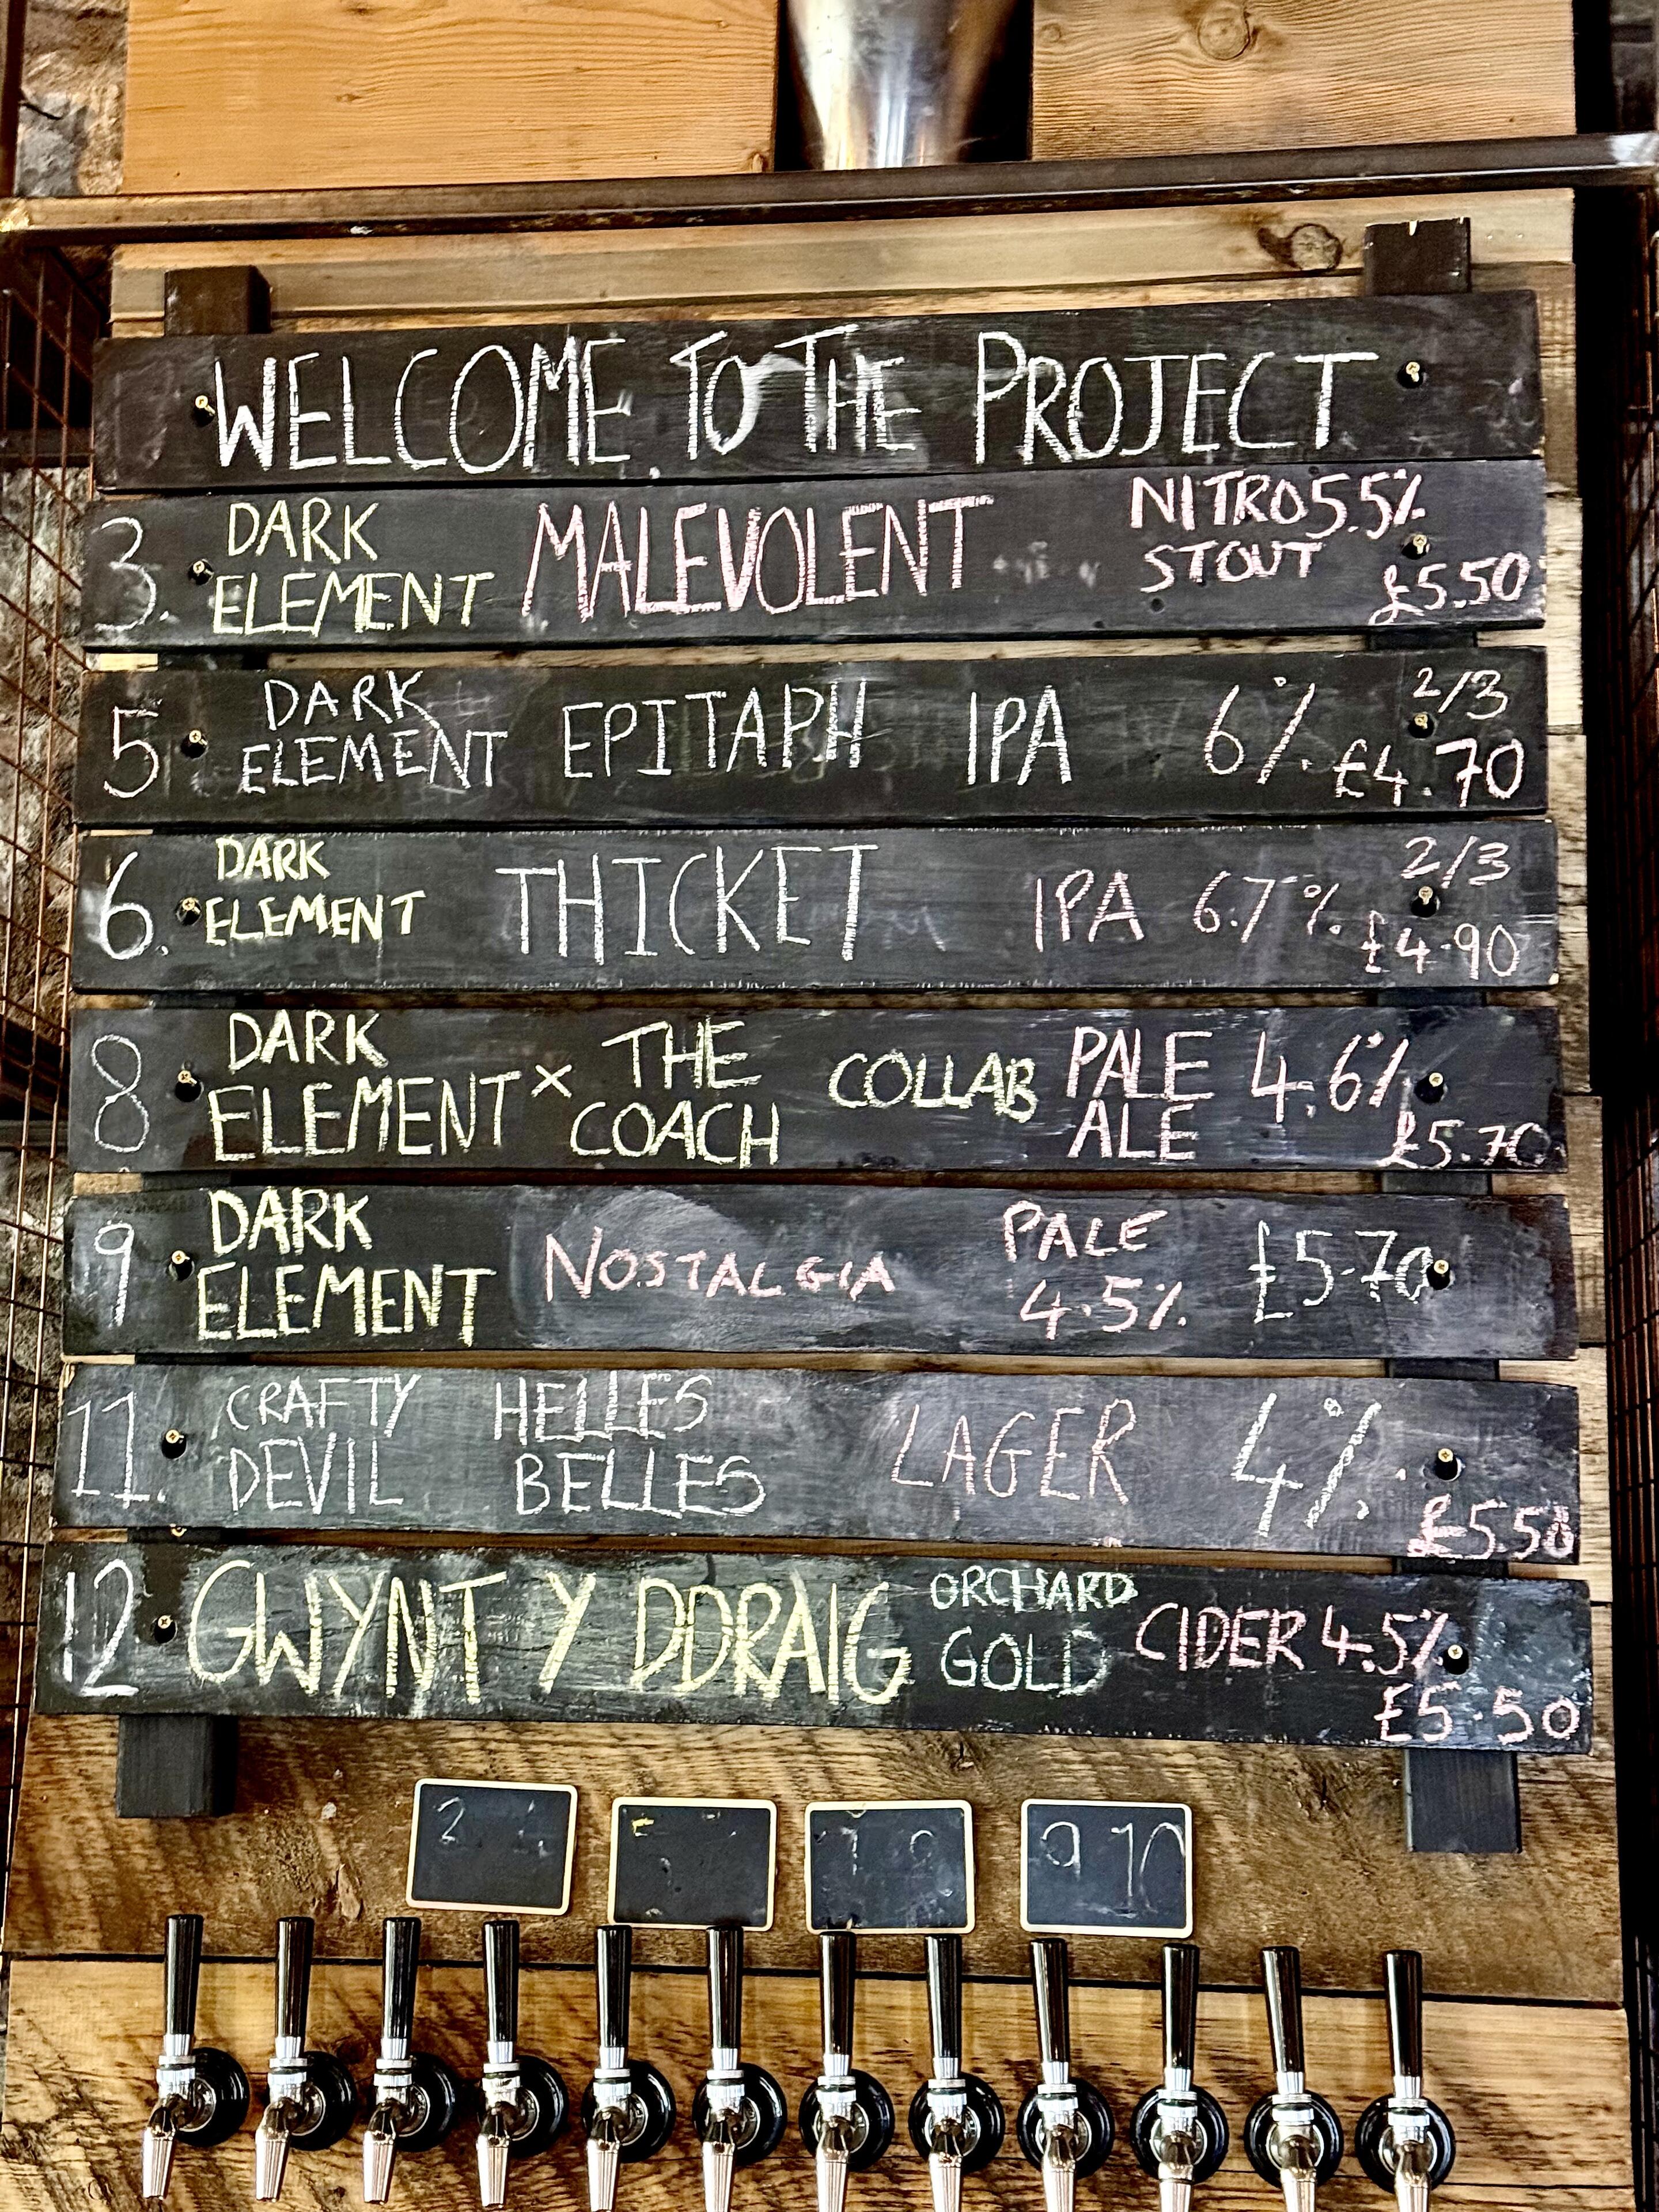 WELCOME TO THE PROJECT
3. DARK ELEMENT MALEVOLENT NITRO STOUT 5.5% £5.50
5 DARK ELEMENT EPITAPH IPA 6% 2/3 £4.70
6. DARK ELEMENT THICKET IPA 6.7% 2/3 £4.90
8 DARK ELEMENT × THE COACH COLLAB PALE ALE 4.6% £5.70
9 DARK ELEMENT NOSTALGIA PALE 4.5% £5.70
11. CRAFTY DEVIL HELLES BELLES LAGER 4% £5.50
12 GWYNT Y DDRAIG ORCHARD GOLD CIDER 4.5% £5.50
2
9 10